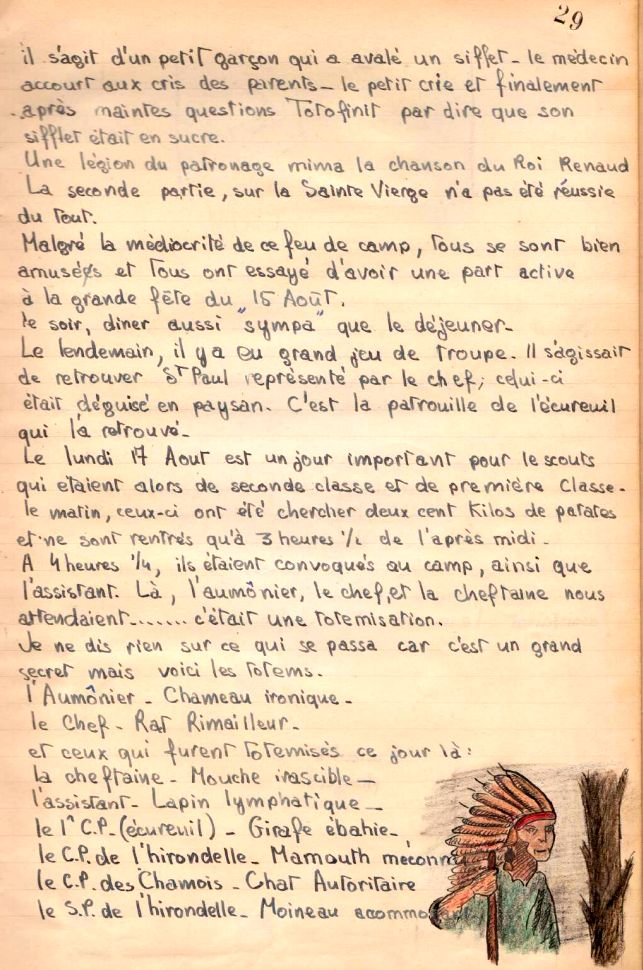 29
il s'agit d'un petit garçon qui a avalé un sifflet - le médecin
accourt aux cris des parents - le petit crie et finalement
après maintes questions Toto finit par dire que son
sifflet était en sucre.
Une légion du patronage mima la chanson du Roi Renaud
La seconde partie, sur la Sainte Vierge n'a pas été réussie
du tout.
Malgré la médiocrité de ce feu de camp, tous se sont bien
amusés et tous ont essayé d'avoir une part active
à la grande fête du 15 Août.
le soir, diner aussi "sympa" que le déjeuner-
Le lendemain, il y a eu grand jeu de troupe. Il s'agissait
de retrouver St Paul représenté par le chef; celui-ci
était déguisé en paysan. C'est la patrouille de l'écureuil
qui l'a retrouvé-
Le lundi 17 Aout est un jour important pour le scouts
qui etaient alors de seconde classe et de première Classe-
le matin, ceux-ci ont été chercher deux cent Kilos de patates
et ne sont rentrés qu'à 3 heures 1/2 de l'après midi -
A 4 heures 1/4, ils étaient convoqués au camp, ainsi que
l'assistant. Là, l'aumônier, le chef, et la cheftaine nous
attendaient....... c'était une totemisation.
Je ne dis rien sur ce qui se passa car c'est un grand
secret mais voici les totems-
l'Aumônier - Chameau ironique-
le Chef- Rat Rimailleur-
et ceux qui furent totemisés ce jour là:
la cheftaine - Mouche irascible-
l'assistant- Lapin lymphatique-
le 1er C.P.-(écureuil) - Girafe ébahie-
le C.P. de l'hirondelle- Mamouth méconn
le C.P. des Chamois - Chat Autoritaire
le S.P. de l'hirondelle- Moineau accommodant